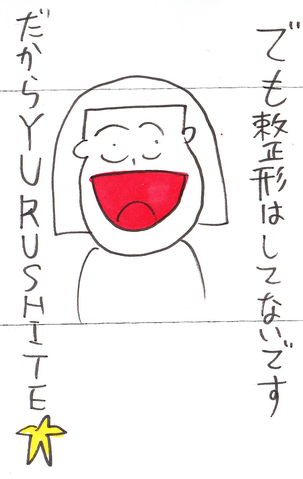 でも整形はしてないです
だからYURUSHITE